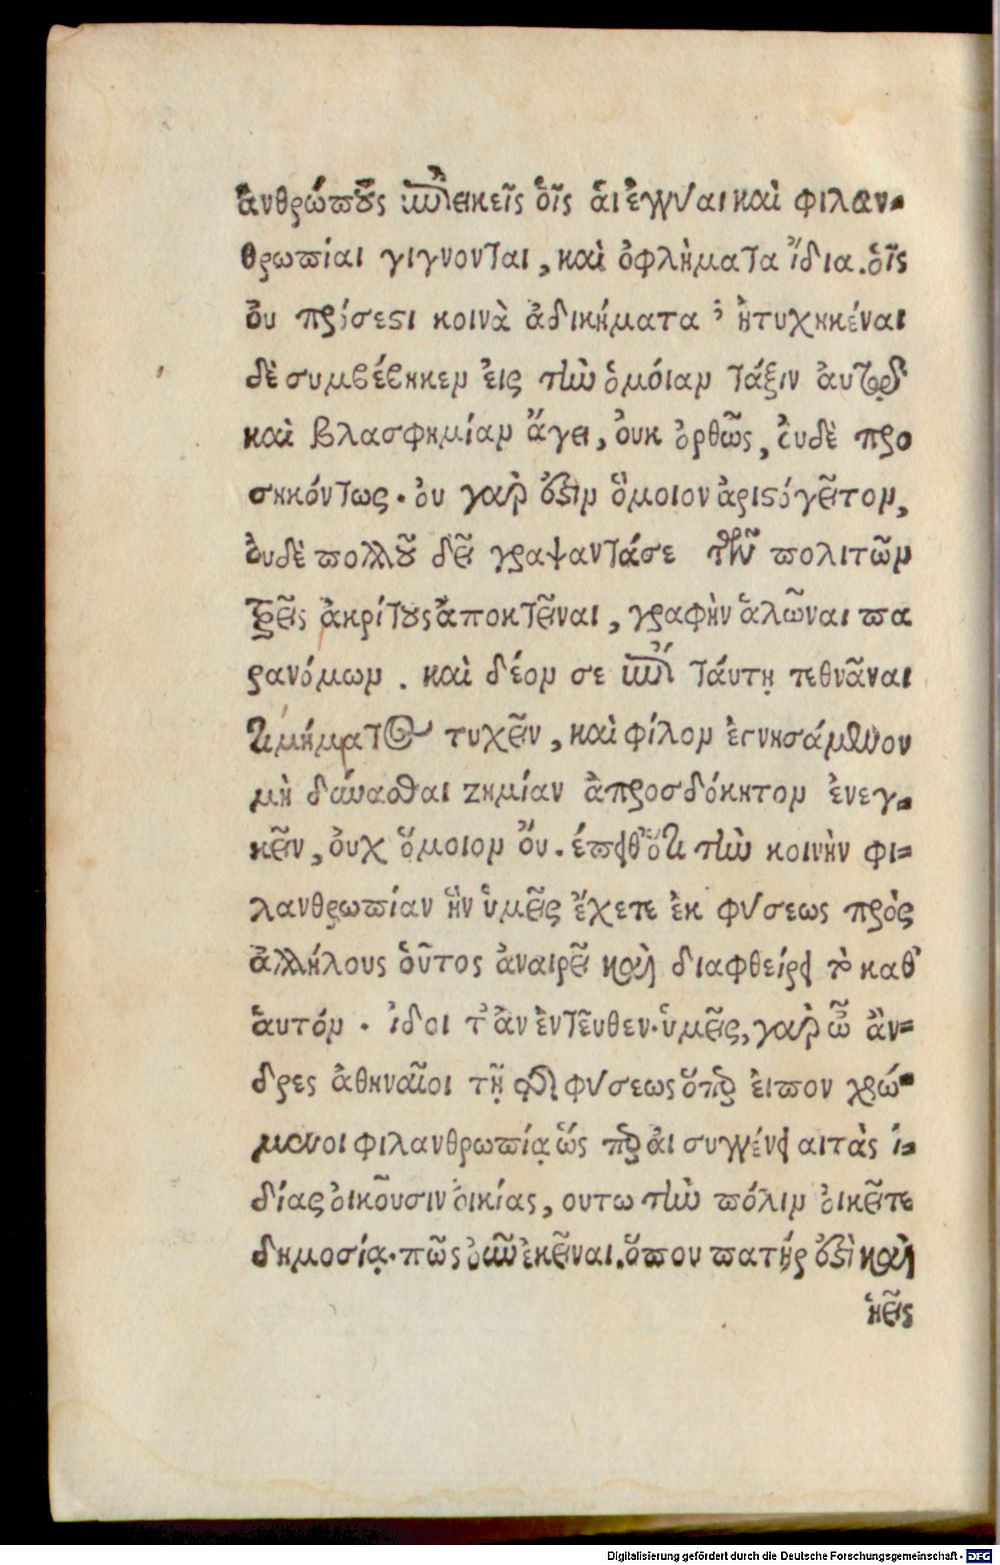 ἀνθρώπους ἐπιεικεῖς ὁῖς ἁι ἐγγύαι καὶ φιλαν-
θρωπίαι γιγνονται, καὶ ὀφλήματα ἴδια. ὁῖς
ὀυ πρόσεστι κοινὰ ἀδικήματα· ἠτυχηκέναι
δὲ συμβέβηκεν ἐις τὴν ὁμόιαν τάξιν ἀυτοὺς
καὶ βλασφημίαν ἄγει, ὀυκ ὀρθῶς, ὀυδὲ προ
σηκόντως. ὀυ γαρ ἐστὶν ὅμοιον ἀριστόγειτον,
ὀυδὲ πολλοῦ δεῖ γραψαντάσε τῶν πολιτῶν
τρεῖς ἀκρίτους ἀποκτεῖναι, γραφὴν ἁλῶναι πα
ρανόμων. καὶ δέον σε ἐπὶ τάυτῃ τεθνᾶναι
τιμήματος τυχεῖν, καὶ φίλον ἐγνησάμενον
μὴ δύνασθαι ζημίαν ἀπροσδόκητον ἐνεγ-
κεῖν, ὀυχ ὅμοιον ὄυ. έπειθ' ὅτι τὴν κοινὴν φι-
λανθρωπίαν ἣν ὑμεῖς ἔχετε ἐκ φύσεως πρὸς
ἀλλήλους ὁῦτος ἀναιρεῖ καὶ διαφθείρει τὸ καθ'
ἁυτόν. ἰδοι τ' ἀν ἐντεῦθεν. ὑμεῖς, γαρ ὦ ἄν-
δρες ἀθηναῖοι τῇ τῆς φύσεως ὅπερ ἐιπον χρώ-
μενοι φιλανθρωπίᾳ ὥς περ ἁι συγγένειαι τὰς ἰ-
δίας ὀικοῦσιν ὀικίας, ουτω τὴν πόλιν ὀικεῖτε
δημοσίᾳ. πῶς ὀῦν ἐκεῖναι. ὅπου πατήρ ἐστὶ καὶ
ἡεῖς
Digitalisierung gefördert durch die Deutsche Forschungsgemeinschaft - DFG